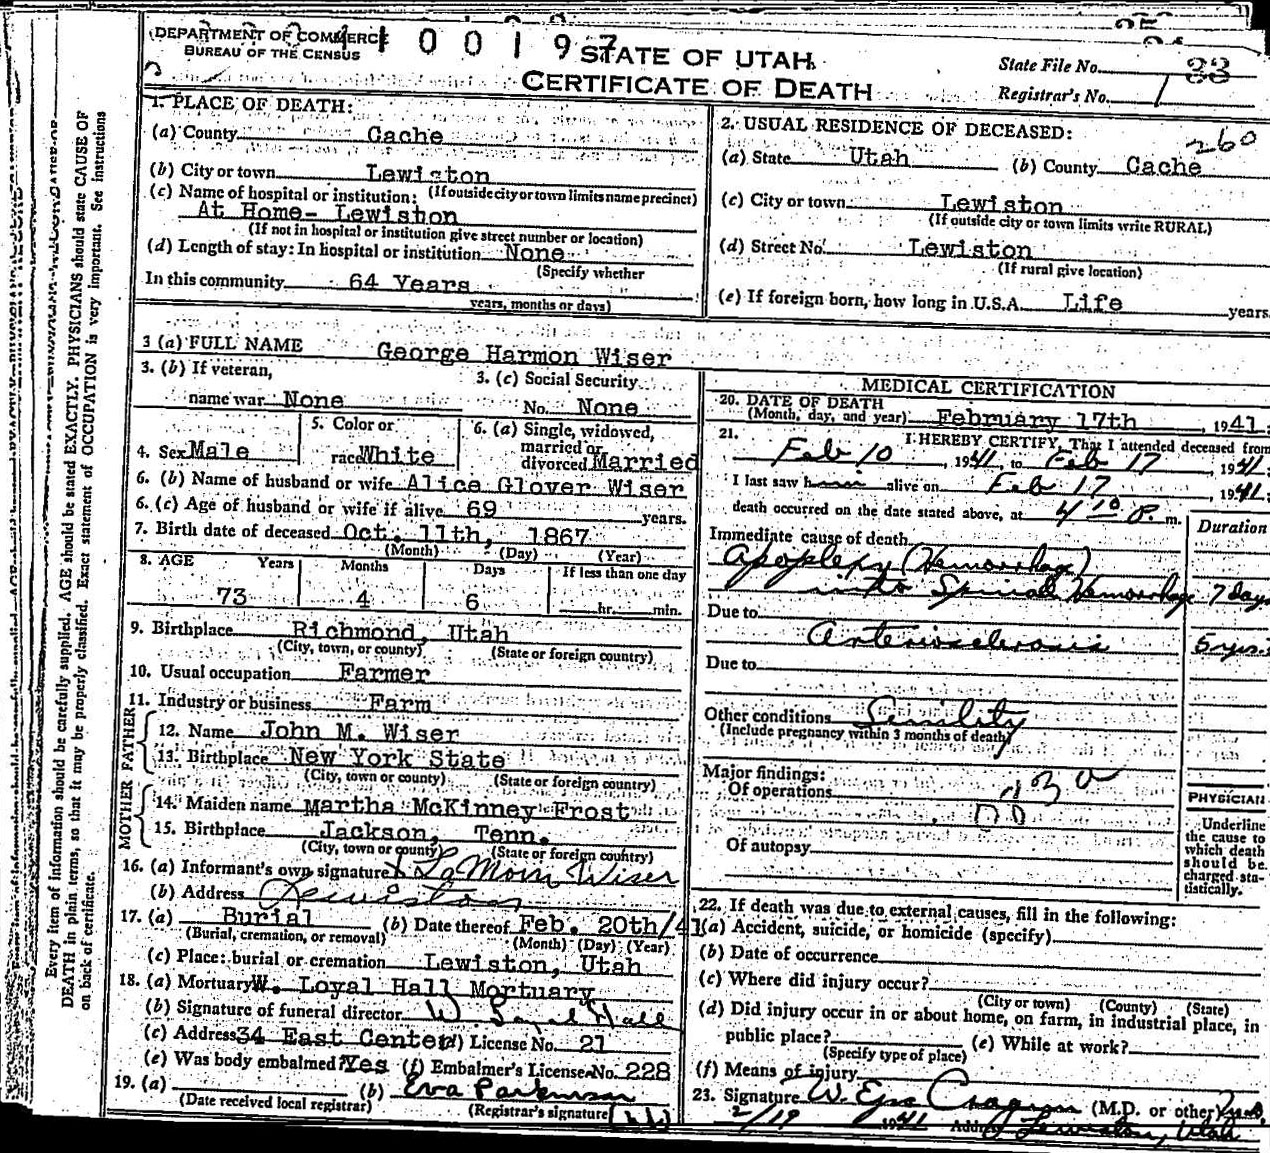 DEPARTMENT OF COMMERCE
BUREAU OF THE CENSUS
100197
STATE OF UTAH
CERTIFICATE OF DEATH
State File No. 33
Registrar's No. 1
1. PLACE OF DEATH:
(a) County Cache
(b) City or town Lewiston
(If outside city or town limits name precinct)
(c) Name of hospital or institution:
At Home- Lewiston
(If not in hospital or institution give street number or location)
(d) Length of stay: In hospital or institution None
(Specify whether
In this community 64 Years
years, months or days)
2. USUAL RESIDENCE OF DECEASED:
260
(a) State Utah (b) County Cache
(c) City or town Lewiston
(If outside city or town limits write RURAL)
(d) Street No. Lewiston
(If rural give location)
(e) If foreign born, how long in U.S.A. Life years
3 (a) FULL NAME George Harmon Wiser
3. (b) If veteran, name war None
3. (c) Social Security No. None
4. Sex Male
5. Color or race White
6. (a) Single, widowed, married or divorced Married
6. (b) Name of husband or wife Alice Glover Wiser
6. (c) Age of husband or wife if alive 69 years.
7. Birth date of deceased Oct. 11th, 1867
(Month) (Day) (Year)
8. AGE Years Months Days If less than one day
73 4 6 hr. min.
9. Birthplace Richmond, Utah
(City, town, or county) (State or foreign country)
10. Usual occupation Farmer
11. Industry or business Farm
FATHER
12. Name John M. Wiser
13. Birthplace New York State
(City, town or county) (State or foreign country)
MOTHER
14. Maiden name Martha McKinney Frost
15. Birthplace Jackson, Tenn.
(City, town or county) (State or foreign country)
16. (a) Informant's own signature x LaMoin Wiser
(b) Address Lewiston
17. (a) Burial (b) Date thereof Feb. 20th/41
(Burial, cremation, or removal) (Month) (Day) (Year)
(c) Place: burial or cremation Lewiston, Utah
18. (a) Mortuary W. Loyal Hall Mortuary
(b) Signature of funeral director W Loyal Hall
(c) Address 34 East Center (d) License No. 21
(e) Was body embalmed? Yes (f) Embalmer's License No. 228
19. (a) (b) Eva Parkinson
(Date received local registrar) (Registrar's signature)
MEDICAL CERTIFICATION
20. DATE OF DEATH
(Month, day, and year) February 17th, 1941
21. I HEREBY CERTIFY, That I attended deceased from
Feb 10, 1941 to Feb 17 1941
I last saw him alive on Feb 17, 1941
death occurred on the date stated above, at 4 10 P. m.
Duration
Immediate cause of death
Apoplexy (Hemorrhage)
into Spinal Hemorrhage 7 days
Due to
Arteriosclerosis 5 yrs
Due to
Other conditions Senility
(Include pregnancy within 3 months of death)
Major findings:
Of operations
no
Of autopsy
PHYSICIAN
Underline the cause to which death should be charged statistically.
22. If death was due to external causes, fill in the following:
(a) Accident, suicide, or homicide (specify)
(b) Date of occurrence
(c) Where did injury occur?
(City or town) (County) (State)
(d) Did injury occur in or about home, on farm, in industrial place, in
public place? (e) While at work?
(Specify type of place)
(f) Means of injury
23. Signature W. Cragun (M.D. or other)
2/19 1941 Address Lewiston, Utah
Every item of information should be carefully supplied. AGE should be stated EXACTLY. PHYSICIANS should state CAUSE OF
DEATH in plain terms, so that it may be properly classified. Exact statement of OCCUPATION is very important. See instructions
on back of certificate.